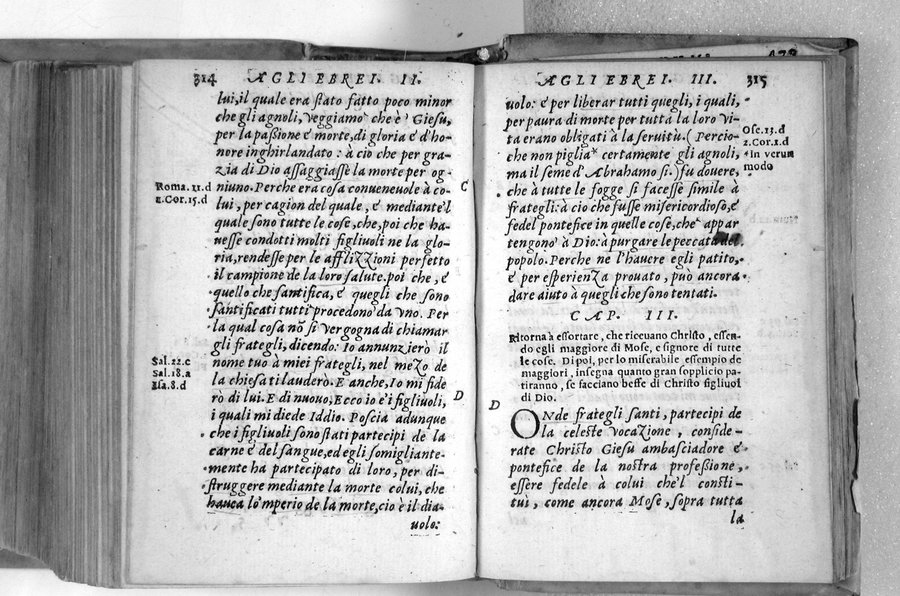 314 AGLI EBREI. II.
lui, il quale era stato fatto poco minor
che gli agnoli, veggiamo che è Giesu,
per la passione e morte, di gloria e d'ho-
nore inghirlandato: à cio che per gra-
zia di Dio assaggiasse la morte per og-
Roma. 11.d
niuno. Perche era cosa conueneuole à co-
2.Cor.15.d
lui, per cagion del quale, e mediante'l
quale sono tutte le cose, che, poi che ha-
uesse condotti molti figliuoli ne la glo-
ria, rendesse per le afflizzioni perfetto
il campione de la loro salute. poi che, e
quello che santifica, e quegli che sono
santificati tutti procedono da vno. Per
la qual cosa nõ si vergogna di chiamar
gli frategli, dicendo: Io annunzierò il
Sal.22.c
nome tuo à miei frategli, nel mezo de
Sal.18.a
la chiesa ti lauderò. E anche, Io mi fide
Isa.8.d
rò di lui. E di nuouo, Ecco io e i figliuoli,
i quali mi diede Iddio. Poscia adunque
che i figliuoli sono stati partecipi de la
carne e del sangue, ed egli somigliante-
mente ha partecipato di loro, per di-
struggere mediante la morte colui, che
hauea lo'mperio de la morte, cio è il dia-
uolo:
C
D
AGLI EBREI. III. 315
uolo: e per liberar tutti quegli, i quali,
per paura di morte per tutta la loro vi-
ta erano obligati à la seruitù. (Percio-
Ose.13.d
2.Cor.1.d
che non piglia* certamente gli agnoli,
*In verun
modo
ma il seme d'Abrahamo si.) fu douere,
che à tutte le fogge si facesse simile à
frategli: à cio che fusse misericordioso, e
fedel pontefice in quelle cose, che appar
tengono à Dio: à purgare le peccata del
popolo. Perche ne l'hauere egli patito,
e per esperienza prouato, può ancora
dare aiuto à quegli che sono tentati.
CAP. III.
Ritorna à essortare, che riceuano Christo, essen-
do egli maggiore di Mose, e signore di tutte
le cose. Di poi, per lo miserabile essempio de
maggiori, insegna quanto gran sopplicio pa-
tiranno, se facciano beffe di Christo figliuol
di Dio.
D
ONde frategli santi, partecipi de
la celeste vocazione, conside-
rate Christo Giesu ambasciadore e
pontefice de la nostra professione,
essere fedele à colui che'l consti-
tui, come ancora Mose, sopra tutta
la